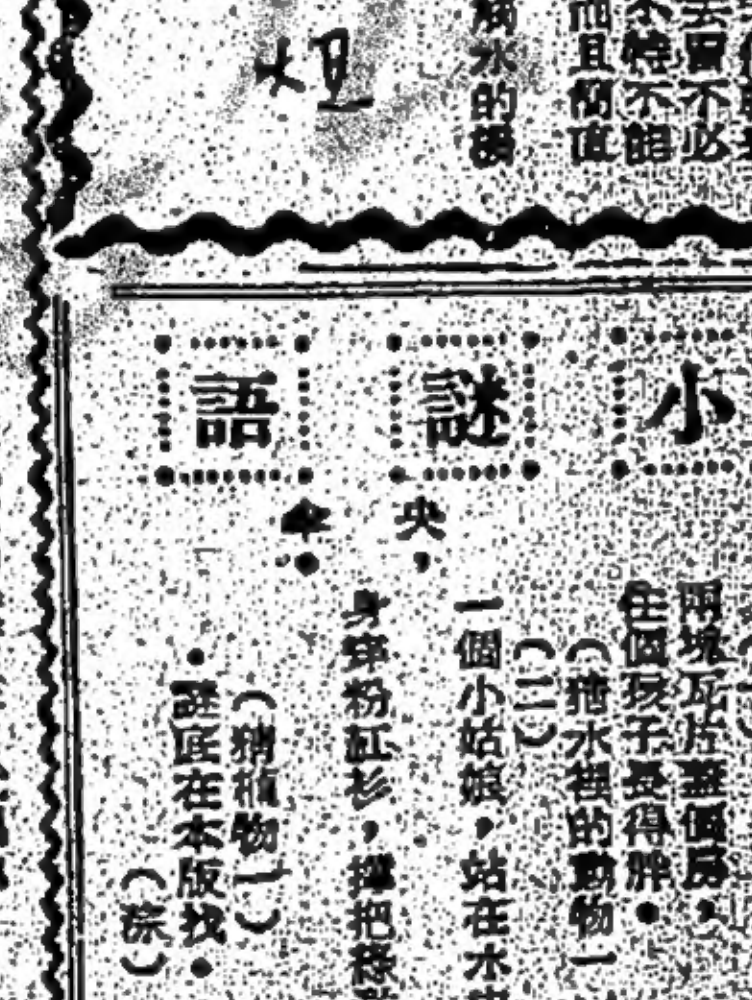 不必
不特不能
而且簡直
水的機
小謎語
兩塊瓦片蓋個房，
住個孩子長得胖。
（猜水裡的動物一
（二）
一個小姑娘，站在水
央，
身穿粉紅衫，撐把綠
傘。
（猜植物一）
・謎底在本版找・